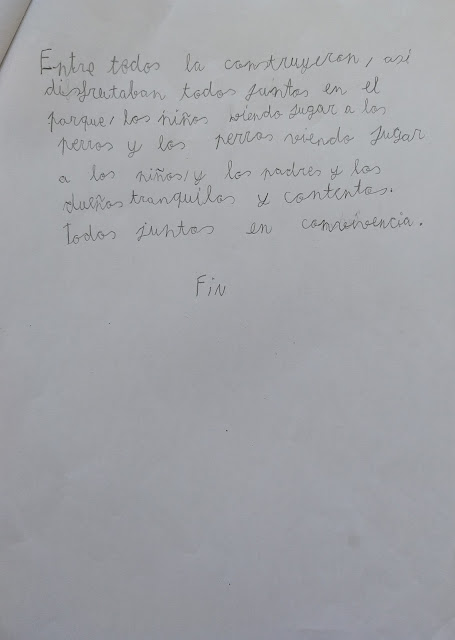 Entre todos la construyeron, así
disfrutaban todos juntos en el
parque, los niños viendo jugar a los
perros y los perros viendo jugar
a los niños, y los padres y los
dueños tranquilos y contentos.
Todos juntos en convivencia.
Fin